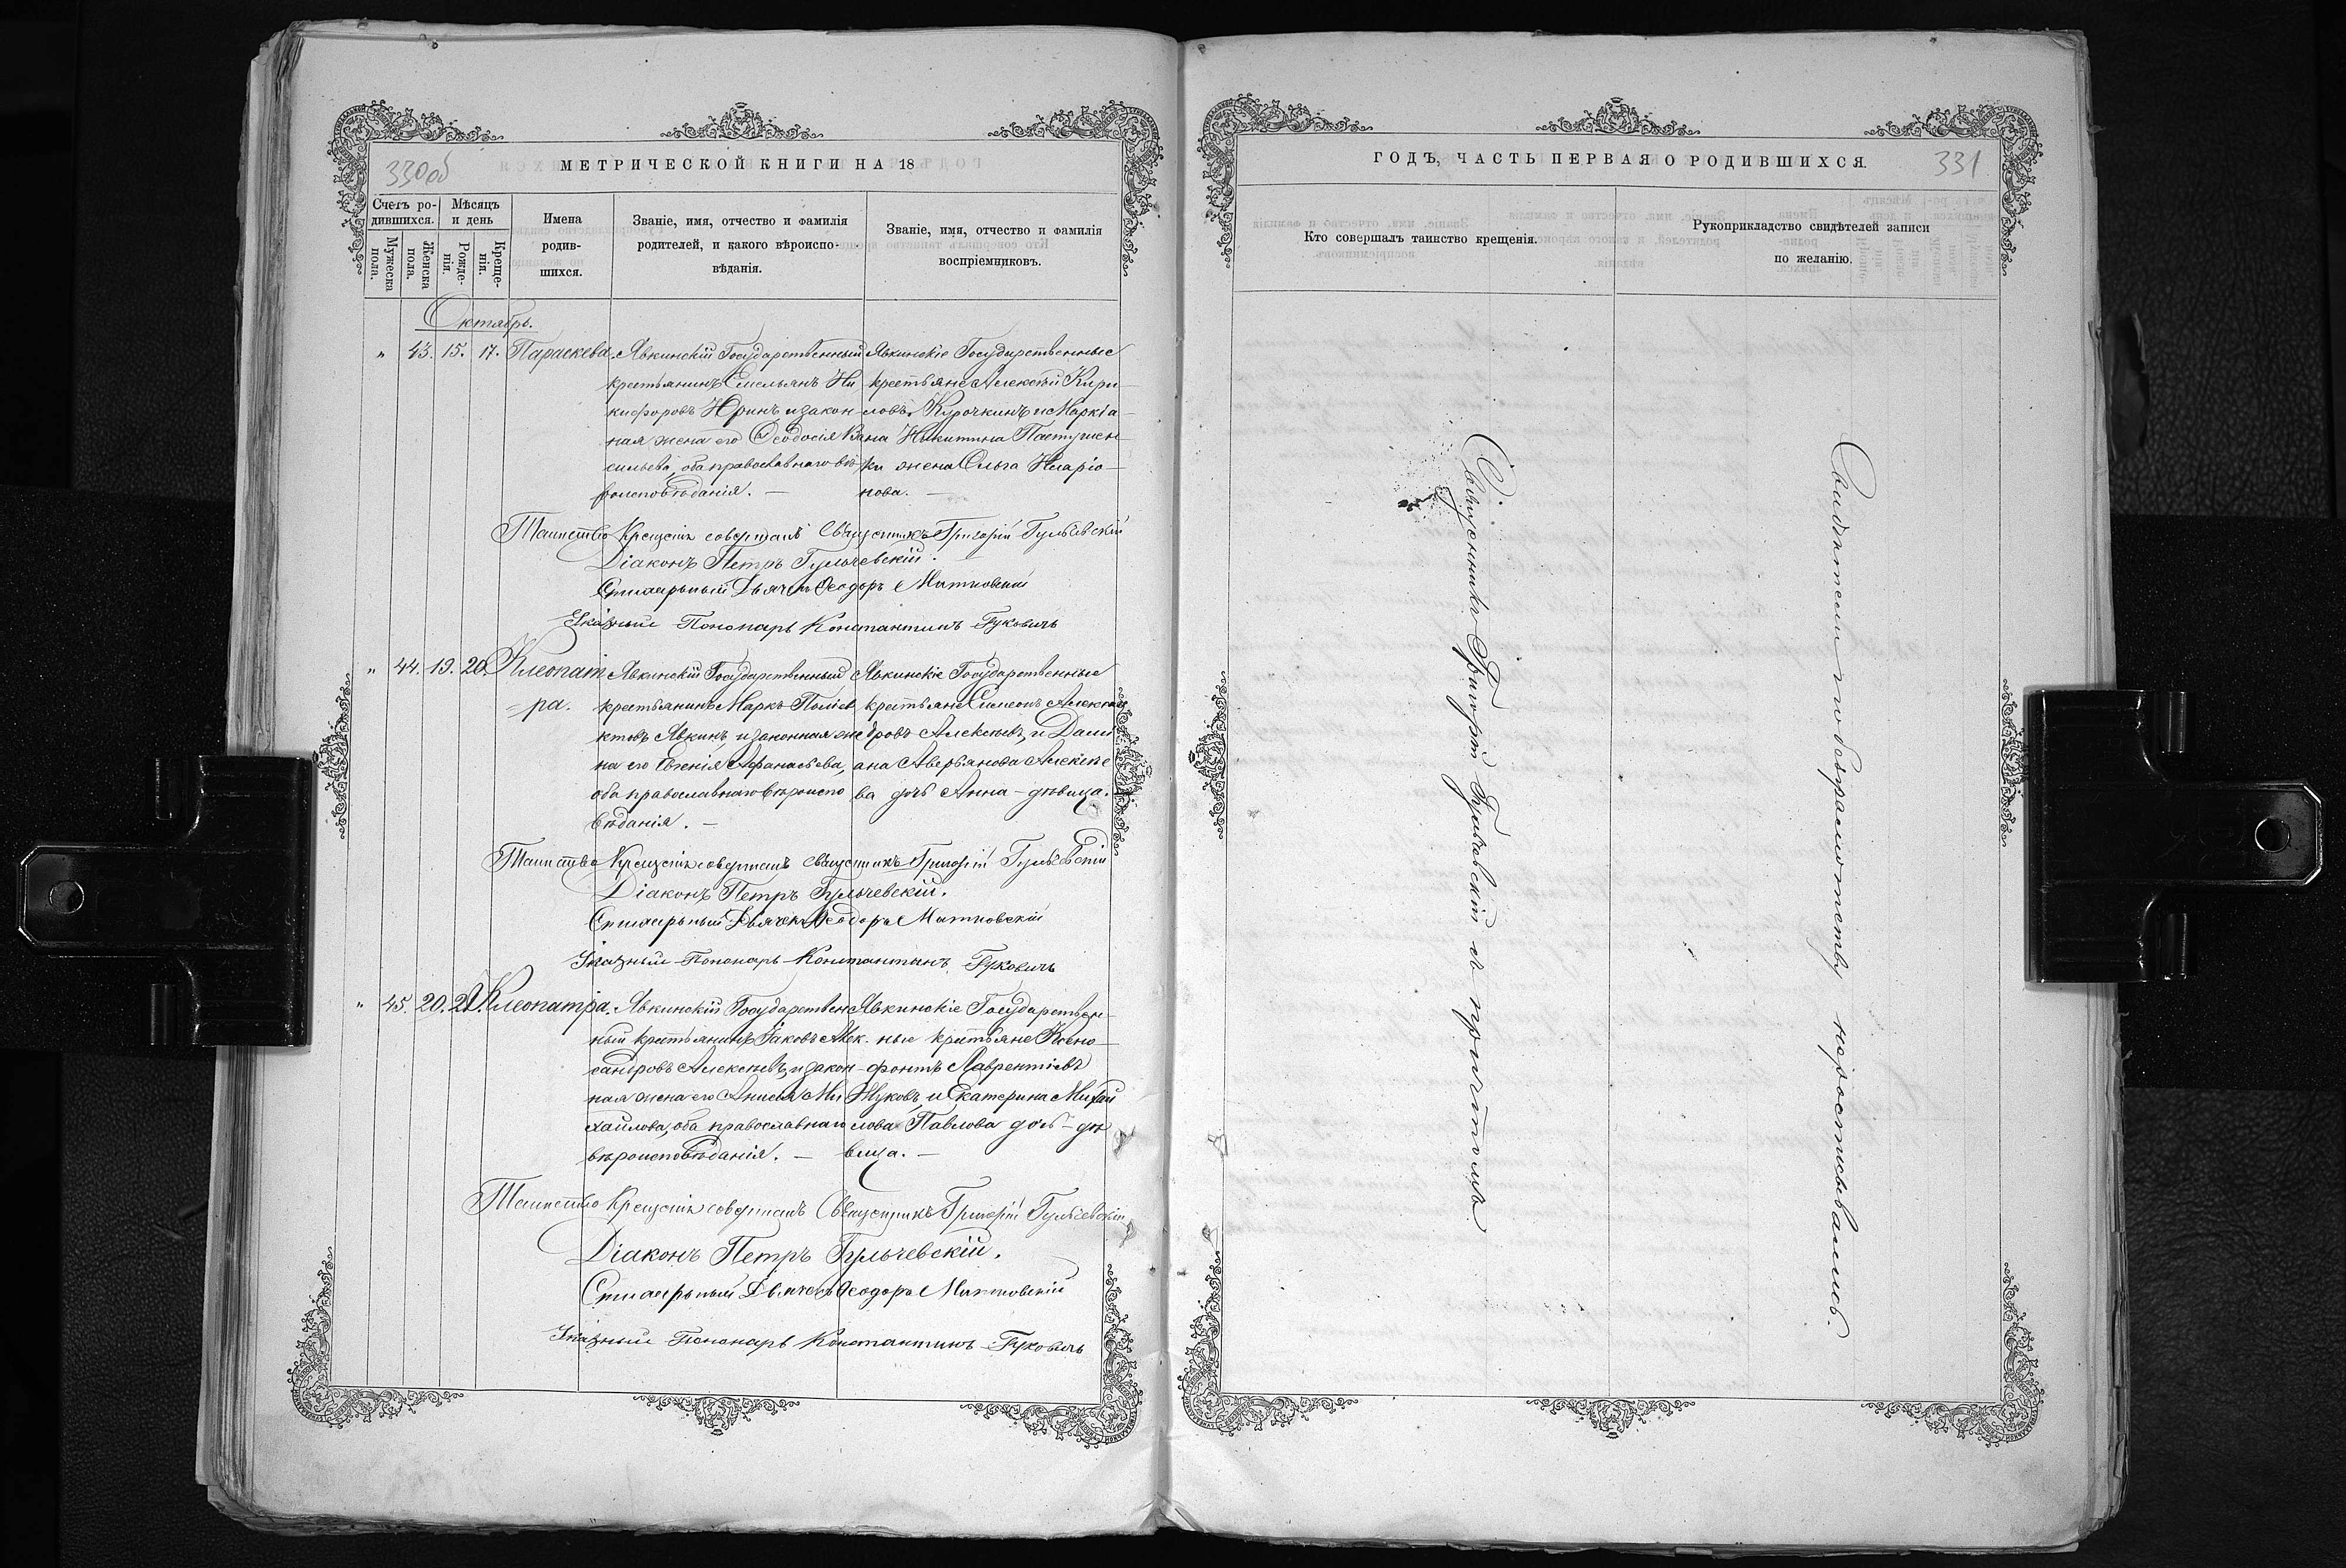 330об
МЕТРИЧЕСКОЙ КНИГИ НА 18
Счетъ родившихся.
Мужеска пола.
Женска пола.
Мѣсяцъ и день
Рожденія.
Крещенія.
Имена родившихся.
Званіе, имя, отчество и фамилія родителей, и какого вѣроисповѣданія.
Званіе, имя, отчество и фамилія воспріемниковъ.
Октябрь.
" 43. 15. 17. Параскева.
Явкинскій Государственный
крестьянинъ Емельянъ Ни
кифоровъ Юринъ и закон
ная жена его Ѳеодосія Ва
сильева, оба православнаго вѣ
роисповѣданія. —
Явкинскіе Государственные
крестьяне Алексѣй Кири
ловъ Курочкинъ и Маркіа
на Никитина Пастушен
ки жена Ольга Иларіо
нова. —
Таинство Крещенія совершалъ Священникъ Григорій Гульчевскій
Діаконъ Петръ Гульчевскій.
Стихарный Дьячекъ Ѳеодоръ Матковскій
Указный Пономарь Константинъ Гуковичъ
" 44. 19. 20. Клеопат
ра.
Явкинскій Государственный
крестьянинъ Маркъ Поліев
ктовъ Явкинъ, и законная же
на его Евгенія Афанасьева,
оба православнаго вѣроиспо
вѣданія. —
Явкинскіе Государственные
крестьяне Симеонъ Алексан
дровъ Алексѣевъ, и Дами
ана Аверьянова Алексѣе
ва дочь Анна - дѣвица.
Таинство Крещенія совершалъ Священникъ Григорій Гульчевскій
Діаконъ Петръ Гульчевскій.
Стихарный Дьячекъ Ѳеодоръ Матковскій
Указный Пономарь Константинъ Гуковичъ
" 45. 20. 21. Клеопатра.
Явкинскій Государствен
ный крестьянинъ Іаковъ Алек
сандровъ Алексѣевъ, и закон
ная жена его Анисія Ми
хайлова, оба православнаго
вѣроисповѣданія. —
Явкинскіе Государствен
ные крестьяне Ксено
фонтъ Лаврентіевъ
Жуковъ, и Екатерина Михай
лова Павлова дочь - дѣ
вица. —
Таинство Крещенія совершалъ Священникъ Григорій Гульчевскій
Діаконъ Петръ Гульчевскій.
Стихарный Дьячекъ Ѳеодоръ Матковскій
Указный Пономарь Константинъ Гуковичъ
ГОДЪ, ЧАСТЬ ПЕРВАЯ О РОДИВШИХСЯ.
331
Кто совершалъ таинство крещенія.
Рукоприкладство свидѣтелей записи по желанію.
Священникъ Григорій Гульчевскій съ причтомъ
Свидѣтели по безграмотству нерасписывались.